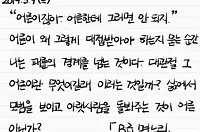 2019.5.9 (목)
"어른이잖아 어른한테 그러면 안 되지."
어른이 왜 그렇게 대접받아야 하는지 묻는 순간
나는 패륜의 경계를 넘는 것이다. 대관절 그
어른이란 무엇이길래 이러는 것일까? 삶에서
모범을 보이고 아랫사람을 돌봐주는 것이 어른
아닌가? 「B급 며느리」